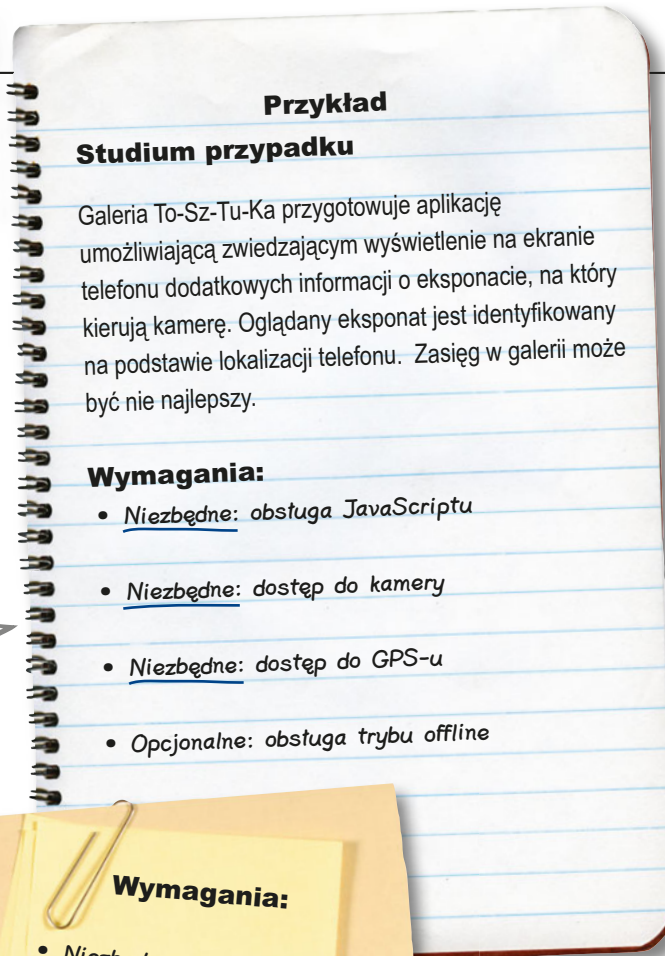 Przykład
Studium przypadku
Galeria To-Sz-Tu-Ka przygotowuje aplikację
umożliwiającą zwiedzającym wyświetlenie na ekranie
telefonu dodatkowych informacji o eksponacie, na który
kierują kamerę. Oglądany eksponat jest identyfikowany
na podstawie lokalizacji telefonu. Zasięg w galerii może
być nie najlepszy.
Wymagania:
• Niezbędne: obsługa JavaScriptu
• Niezbędne: dostęp do kamery
• Niezbędne: dostęp do GPS-u
• Opcjonalne: obsługa trybu offline
Wymagania: